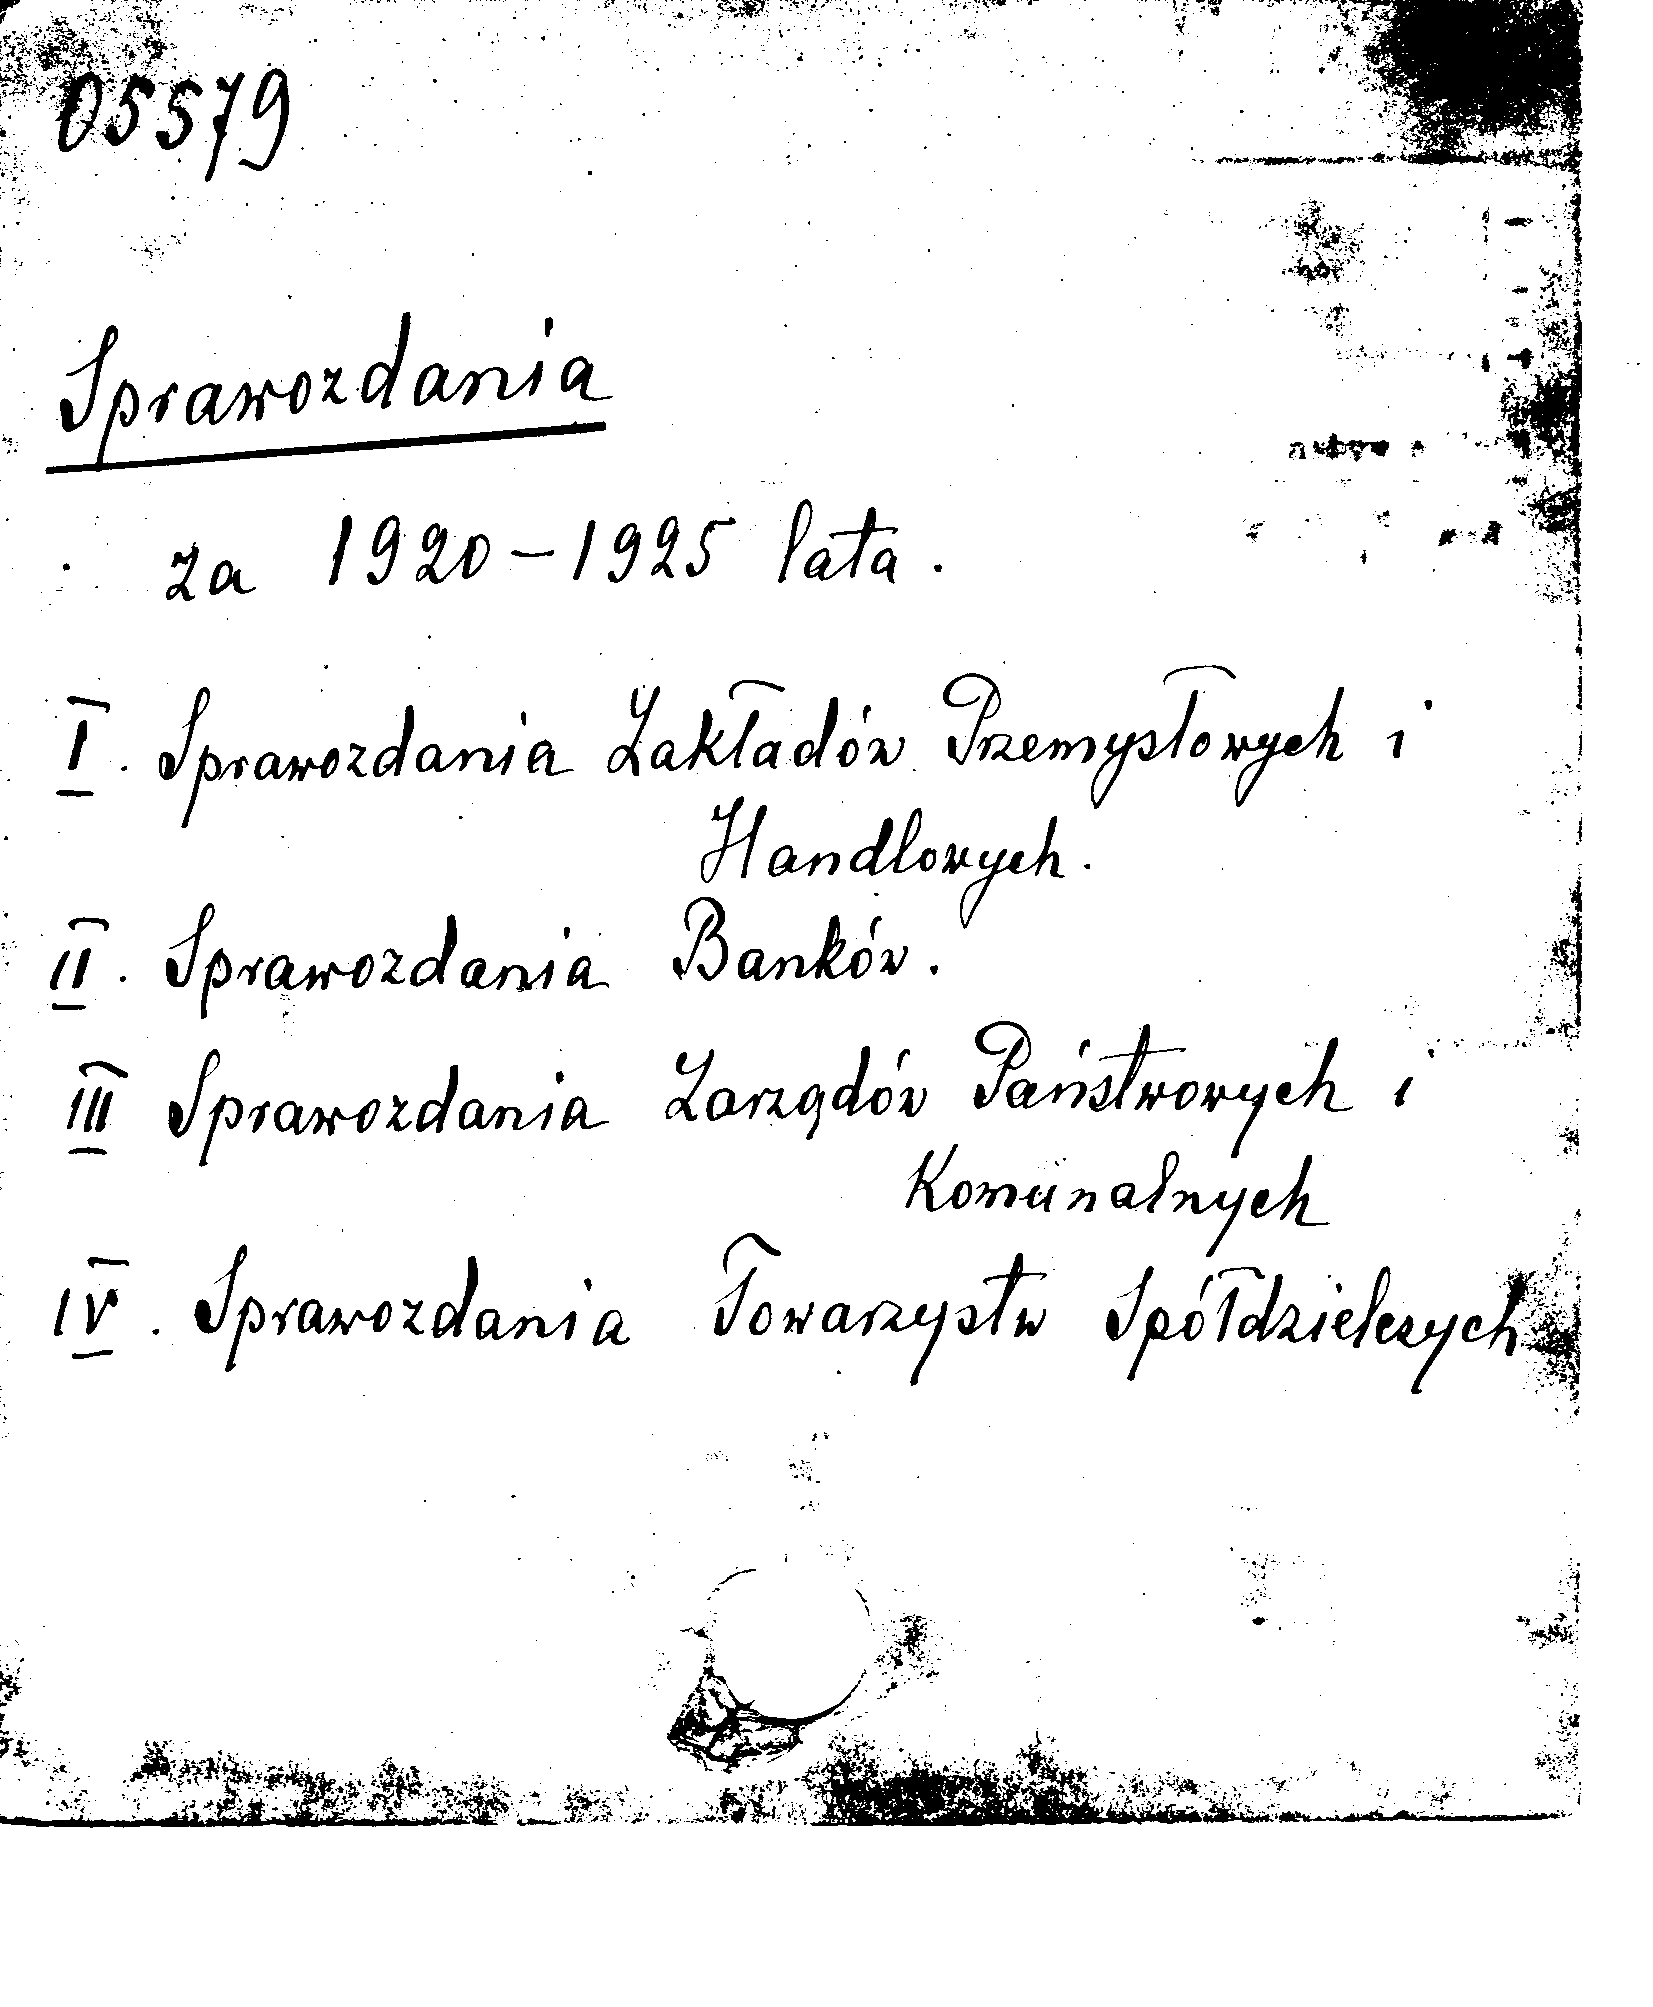 05579
Sprawozdania
za 1920-1925 lata.
I. Sprawozdania Zakładów Przemysłowych i
Handlowych.
II. Sprawozdania Banków.
III Sprawozdania Zarządów Państwowych i
Komunalnych
IV. Sprawozdania Towarzystw Spółdzielczych